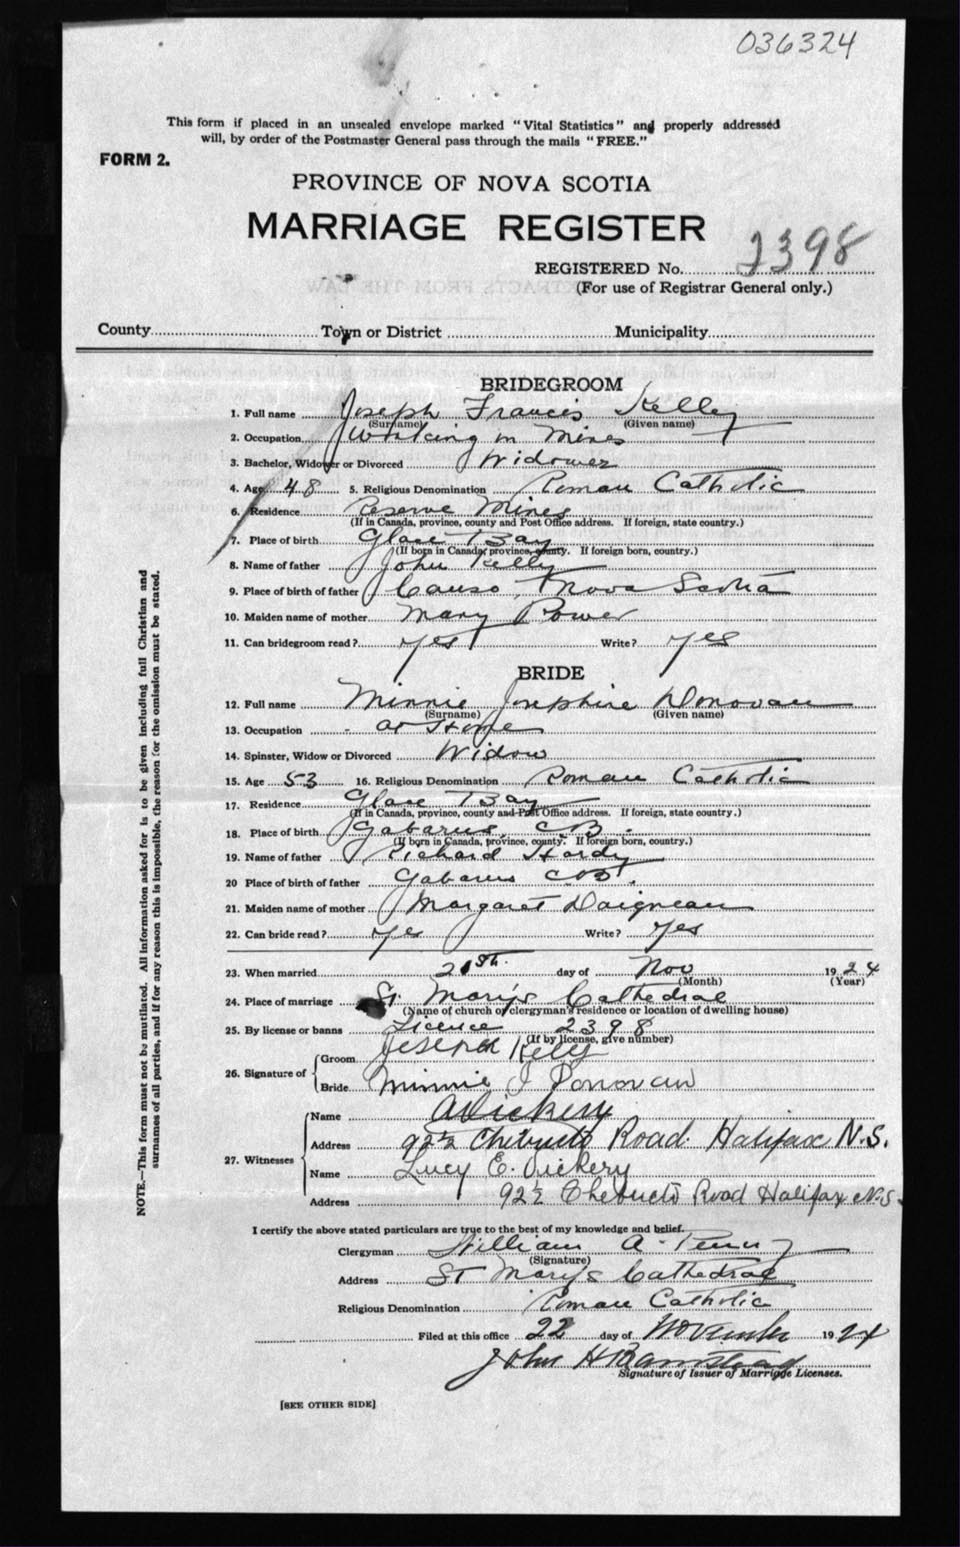 036324
This form if placed in an unsealed envelope marked "Vital Statistics" and properly addressed
will, by order of the Postmaster General pass through the mails "FREE."
FORM 2.
PROVINCE OF NOVA SCOTIA
MARRIAGE REGISTER
REGISTERED No. 2398
(For use of Registrar General only.)
County Town or District Municipality
BRIDEGROOM
1. Full name Joseph Frances Kelley
(Surname) (Given name)
2. Occupation Working in Mines
3. Bachelor, Widower or Divorced Widower
4. Age 48 5. Religious Denomination Roman Catholic
6. Residence Reserve Mines
(If in Canada, province, county and Post Office address. If foreign, state country.)
7. Place of birth Glace Bay
(If born in Canada, province, county. If foreign born, country.)
8. Name of father John Kelly
9. Place of birth of father Canso, Nova Scotia
10. Maiden name of mother Mary Power
11. Can bridegroom read? Yes Write? Yes
BRIDE
12. Full name Minnie Josephine Donovan
(Surname) (Given name)
13. Occupation At Home
14. Spinster, Widow or Divorced Widow
15. Age 53 16. Religious Denomination Roman Catholic
17. Residence Glace Bay
(If in Canada, province, county and Post Office address. If foreign, state country.)
18. Place of birth Gabarus, C B.
(If born in Canada, province, county. If foreign born, country.)
19. Name of father Richard Hardy
20 Place of birth of father Gabarus C B.
21. Maiden name of mother Margaret Daigneau
22. Can bride read? Yes Write? Yes
23. When married 21st. day of Nov 1924
(Month) (Year)
24. Place of marriage St. Mary's Cathedral
(Name of church or clergyman's residence or location of dwelling house)
25. By license or banns Licence 2398
(If by license, give number)
26. Signature of Groom Joseph Kelly
Bride Minnie J Donovan
27. Witnesses Name A Vickery
Address 92½ Chebucto Road. Halifax N.S.
Name Lucy E. Vickery
Address 92½ Chebucto Road Halifax N.S.
I certify the above stated particulars are true to the best of my knowledge and belief.
Clergyman William A. Penny
(Signature)
Address St Mary's Cathedral
Religious Denomination Roman Catholic
Filed at this office 22 day of November 1924
John H Barnstead
Signature of Issuer of Marriage Licenses.
[SEE OTHER SIDE]
NOTE.—This form must not be mutilated. All information asked for is to be given including full Christian and
surnames of all parties, and if for any reason this is impossible, the reason for the omission must be stated.